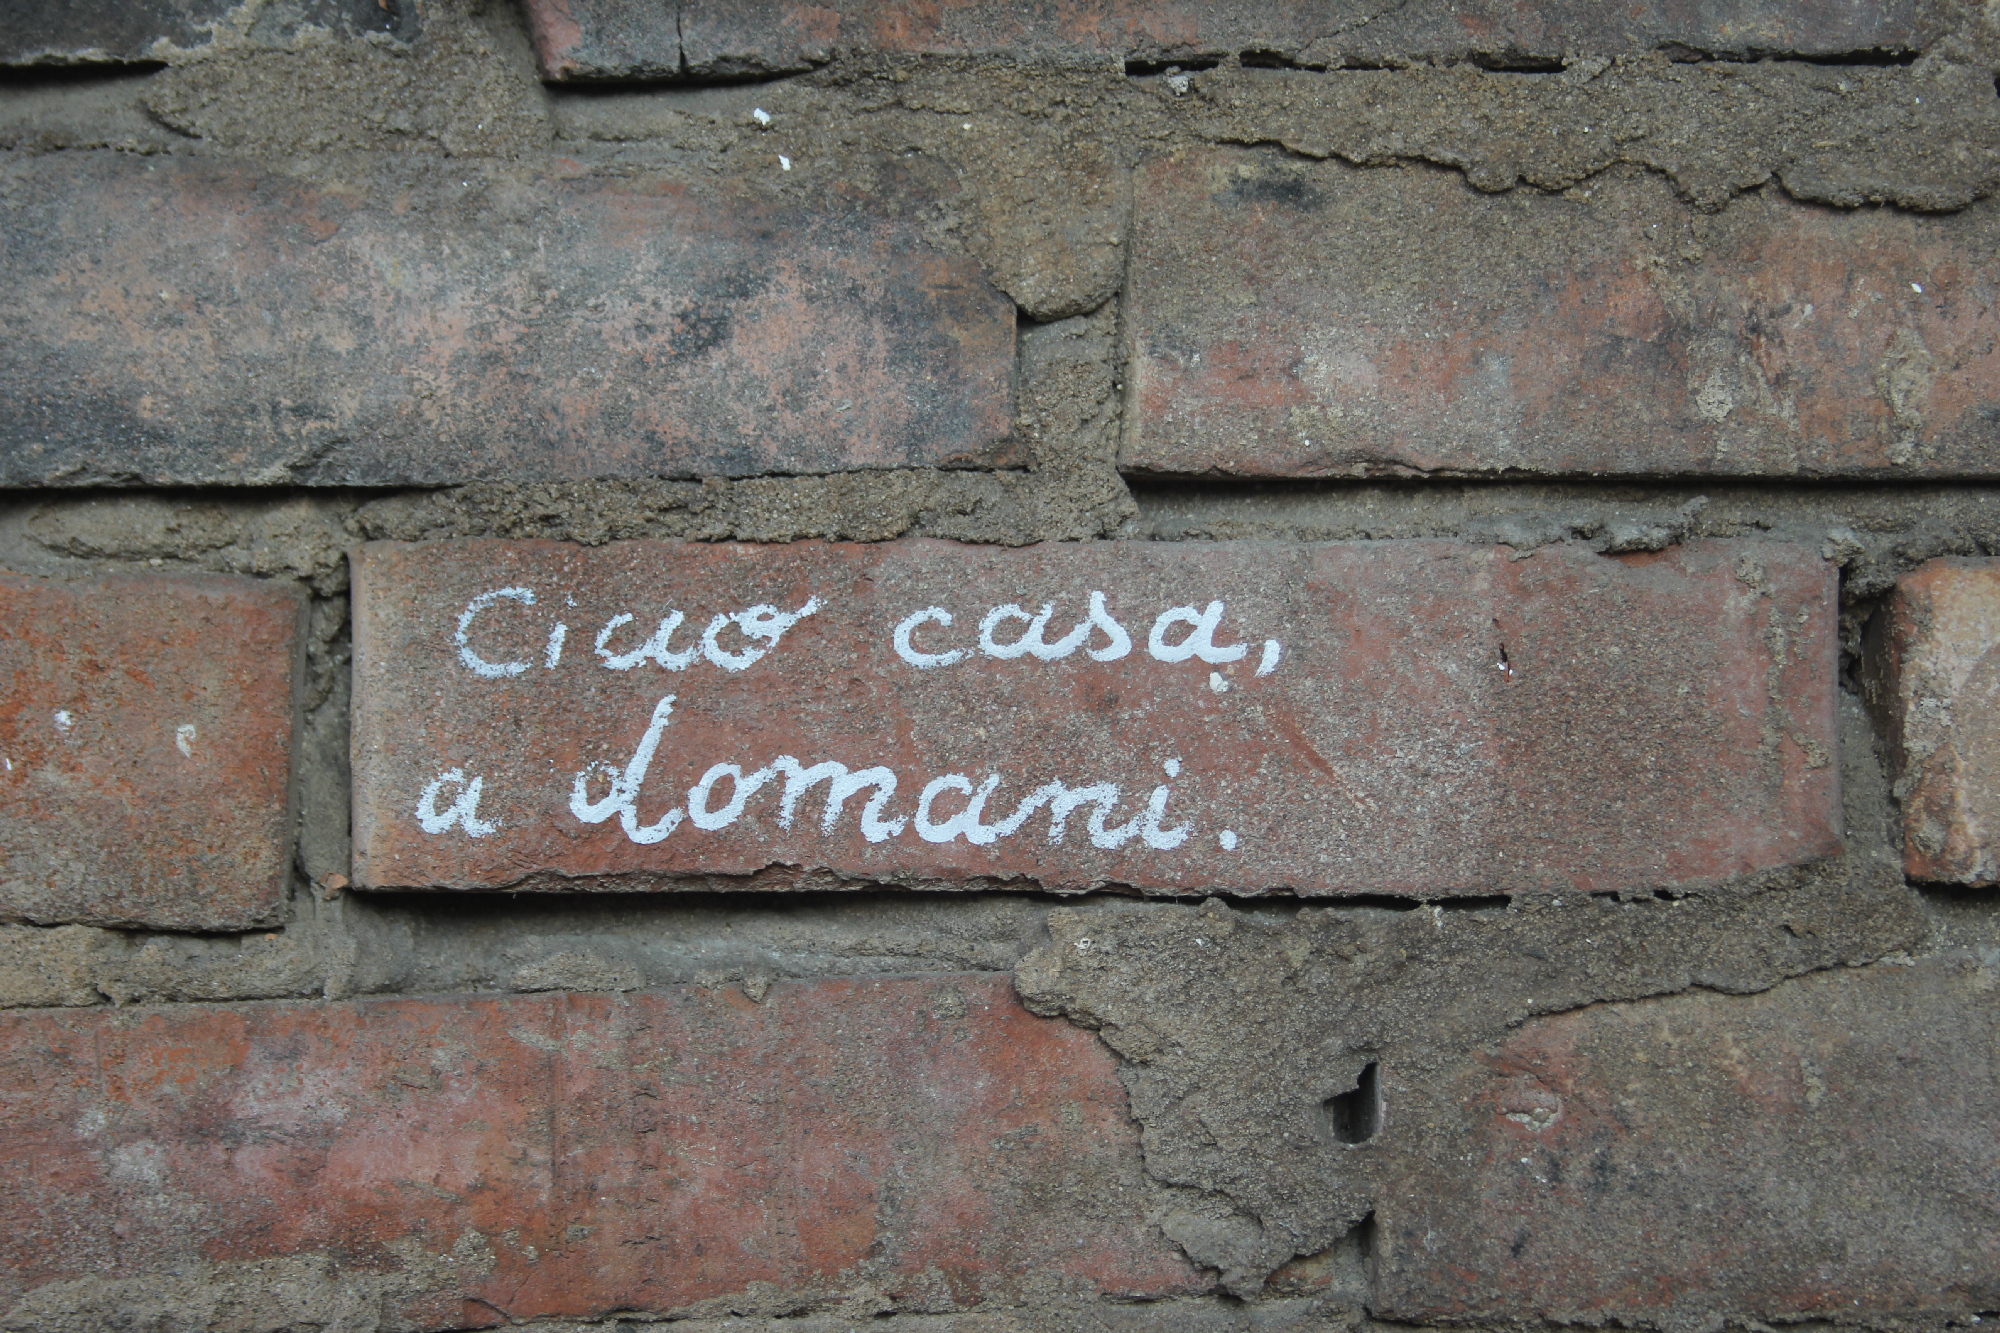 Ciao casa,
a domani.